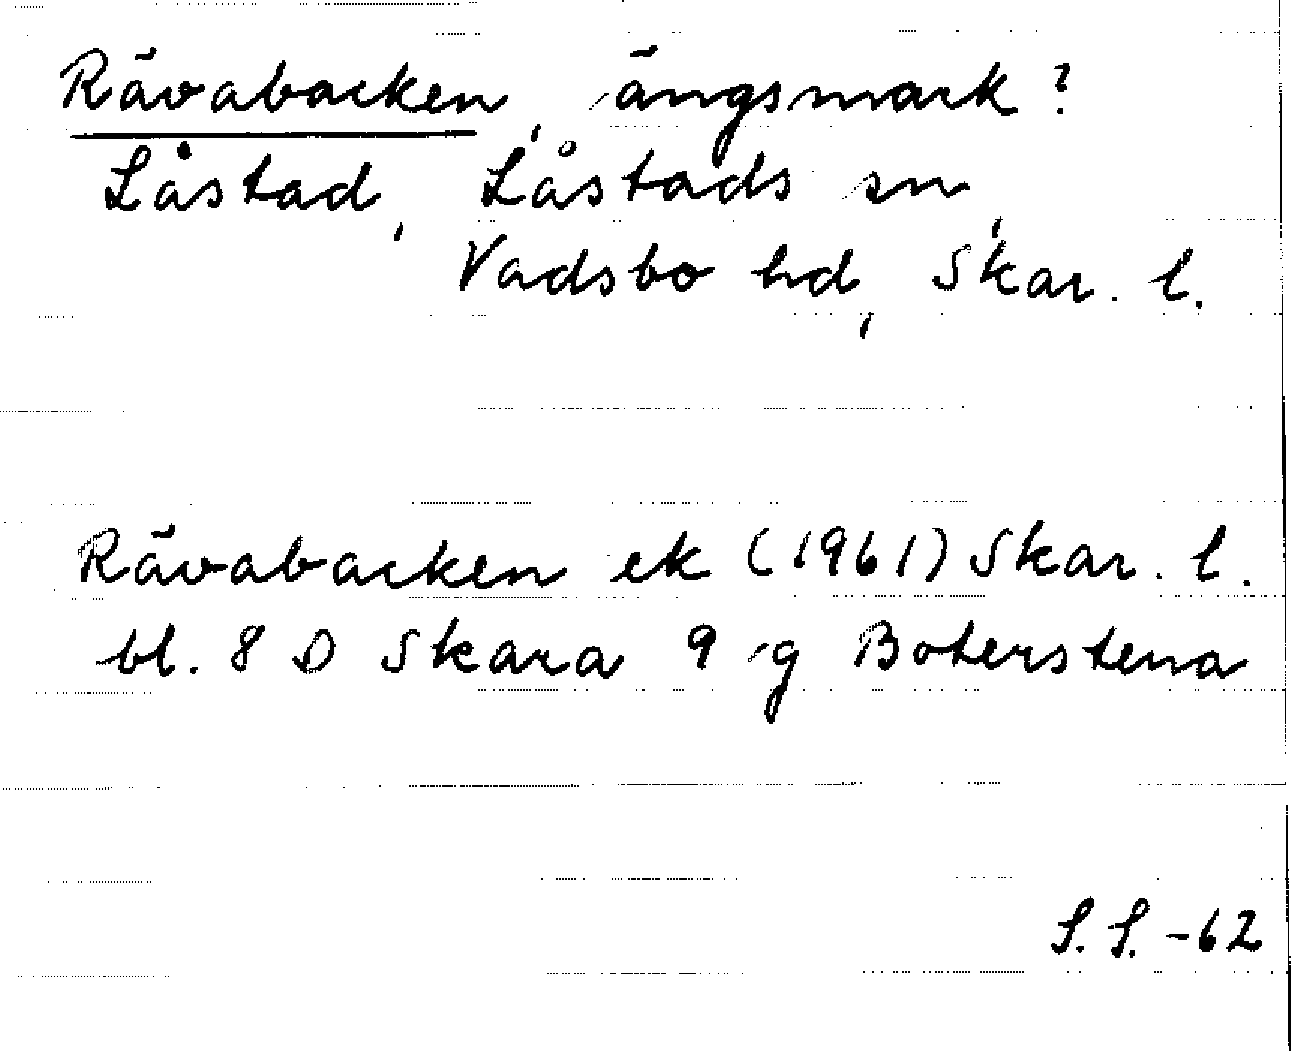 Rävabacken, ängsmark?
Låstad, Låstads sn,
Vadsbo hd, Skar. l.
Rävabacken ek (1961) Skar. l.
bl. 8 D Skara 9 g Boterstena
S. S. -62